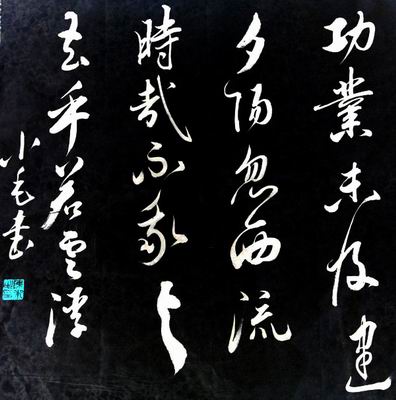 功業未及建
夕陽忽西流
時哉不我与
去乎若雲浮
小毛書